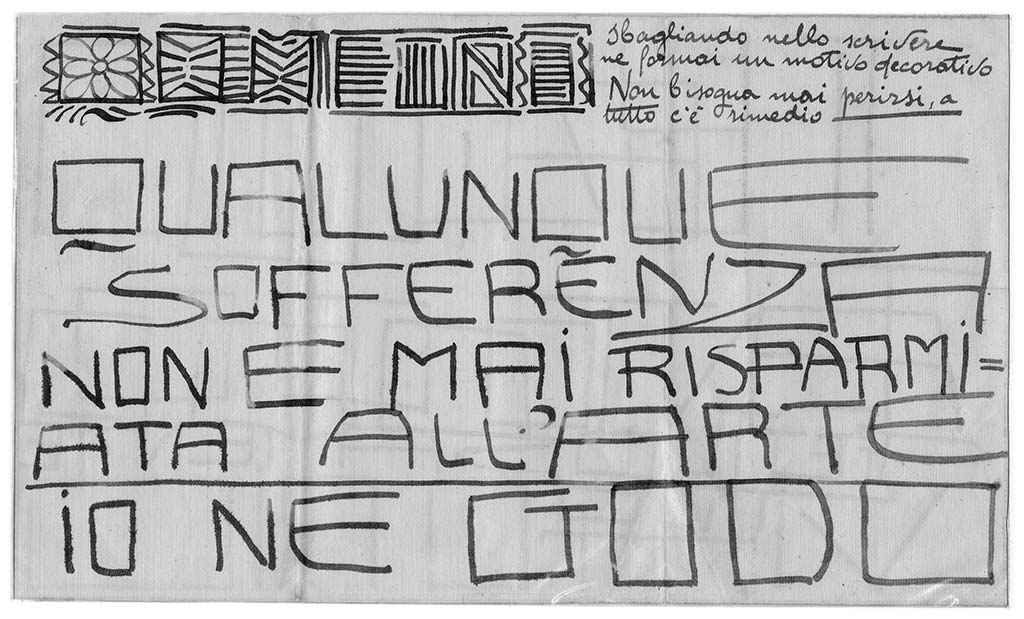 Sbagliando nello scrivere
ne formai un motivo decorativo
Non bisogna mai perirsi, a
tutto c'è rimedio
QUALUNQUE
SOFFERENZA
NON E MAI RISPARMI=
ATA ALL'ARTE
IO NE GODO